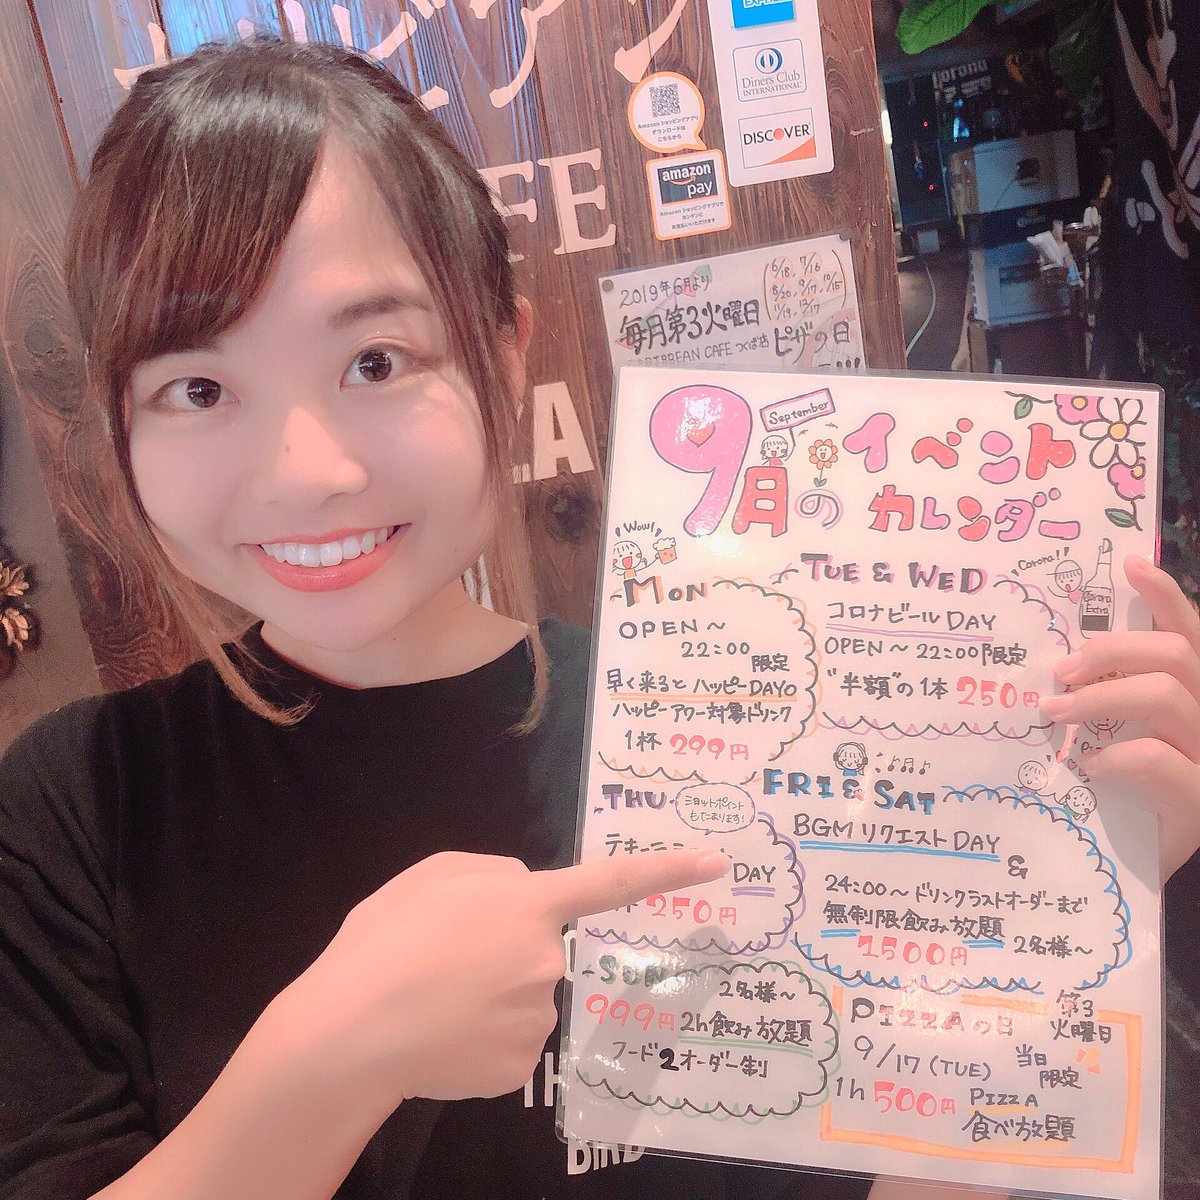 EXPRESS
Diners Club
INTERNATIONAL
DISCOVER
Amazonショッピングアプリ
ダウンロードは
こちらから
amazon
pay
Amazonショッピングアプリで
カンタンに
お支払いいただけます
Corona
2019年6月より
6/18, 7/16
8/20, 9/17, 10/15
11/19, 12/17
毎月第3火曜日
CARIBBEAN CAFE つくば店
ピザの日
September
9月の
イベント
カレンダー
Wow!
MON
OPEN～
22:00
限定
早く来るとハッピーDAY
ハッピーアワー対象ドリンク
1杯 299円
TUE & WED
Corona!!
Corona
Extra
コロナビールDAY
OPEN～22:00限定
"半額"の1本 250円
THU
ショットポイント
もたまります!
DAY
250円
FRI & SAT
BGMリクエストDAY
&
24:00～ドリンクラストオーダーまで
無制限飲み放題
1500円 2名様～
SUN
2名様～
999円 2h飲み放題
フード2オーダー制
PIZZAの日
第3
火曜日
9/17 (TUE)
当日
限定
1h 500円 PIZZA
食べ放題